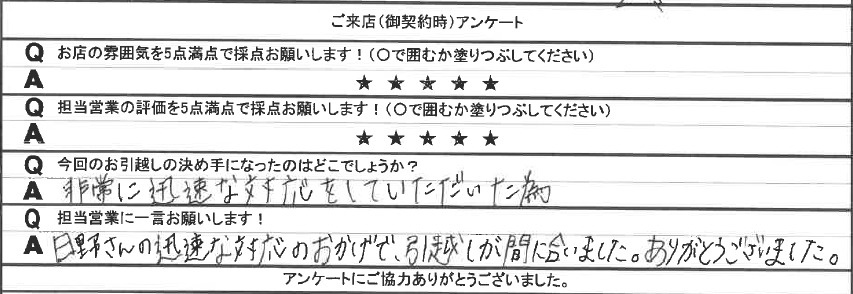 ご来店(御契約時)アンケート
Q お店の雰囲気を5点満点で採点お願いします！(〇で囲むか塗りつぶしてください)
A ★ ★ ★ ★ ★
Q 担当営業の評価を5点満点で採点お願いします！(〇で囲むか塗りつぶしてください)
A ★ ★ ★ ★ ★
Q 今回のお引越しの決め手になったのはどこでしょうか？
A 非常に迅速な対応をしていただいた為
Q 担当営業に一言お願いします！
A 日野さんの迅速な対応のおかげで、引越しが間に合いました。ありがとうございました。
アンケートにご協力ありがとうございました。